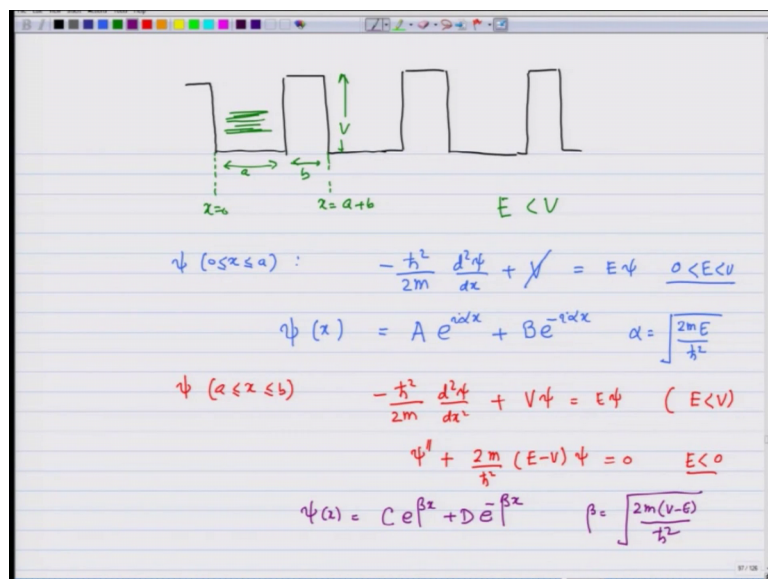 V
a
b
x=0
x=a+b
E < V
ψ (0≤x≤a) : -ℏ²/2m d²ψ/dx + V = Eψ 0<E<V
ψ (x) = A e^{iαx} + B e^{-iαx} α = √(2mE/ℏ²)
ψ (a≤x≤b) -ℏ²/2m d²ψ/dx² + Vψ = Eψ (E<V)
ψ'' + 2m/ℏ² (E-V) ψ = 0 E<0
ψ(x) = C e^{βx} + D e^{-βx} β = √(2m(V-E)/ℏ²)
97 / 126